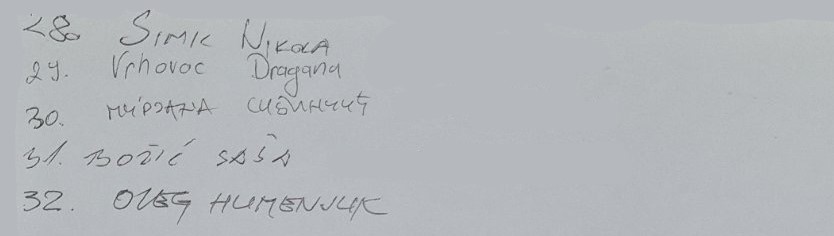 28. SIMIĆ NIKOLA
29. Vrhovac Dragana
30. МИРЈАНА
31. BOŽIĆ SAŠA
32. OLEG HUMENJUK